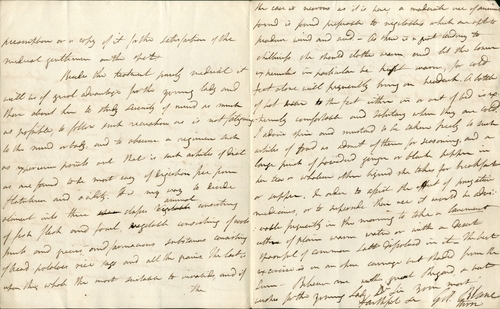 prescription or a copy of it for the satisfaction of the
medical gentlemen on the spot.
Besides the treatment purely medical it
will be of great advantage for the young lady and
those about her to study serenity of mind as much
as possible, to follow such recreation as is not fatiguing
to the mind or body, and to observe a regimen such
as experience points out that is such articles of diet
as are found to be most easy of digestion free from
flatulence and acidity. It is my way to divide
aliment into three classes animal consisting
of fish flesh and fowl, vegetable consisting of roots
fruits and greens, and farinaceous substances consisting
of bread potatoes rice sago and all the grains the last
upon the whole the most suitable to invalids and if
the
the case is nervous as it is here a moderate use of animal
food is found preferable to vegetables which are apt to
produce wind and acid - As there is a great tendency to
chilliness she should clothe warm and let the lower
extremities in particular be kept warm, for cold
feet alone will frequently bring on headach. A bottle
of hot water to the feet either in or out of bed is ex-
tremely comfortable and salutary when they are cold
I advise spice and mustard to be taken freely to such
articles of food as admit of them for seasoning, and a
large pinch of powdered ginger or black pepper in
her tea or whatever other liquid she takes for breakfast
or supper. In order to assist the effect of purgative
medicines, or to supersede their use it would be advis-
able frequently in the morning to take a
either of plain warm water or with a desert
spoonful of common salt dissolved in it - The best
exercise is in an open carriage but should
Believe me with great regard & best
wishes for the young Lady Dr Sir your most
faithful Ser Gil. Blane